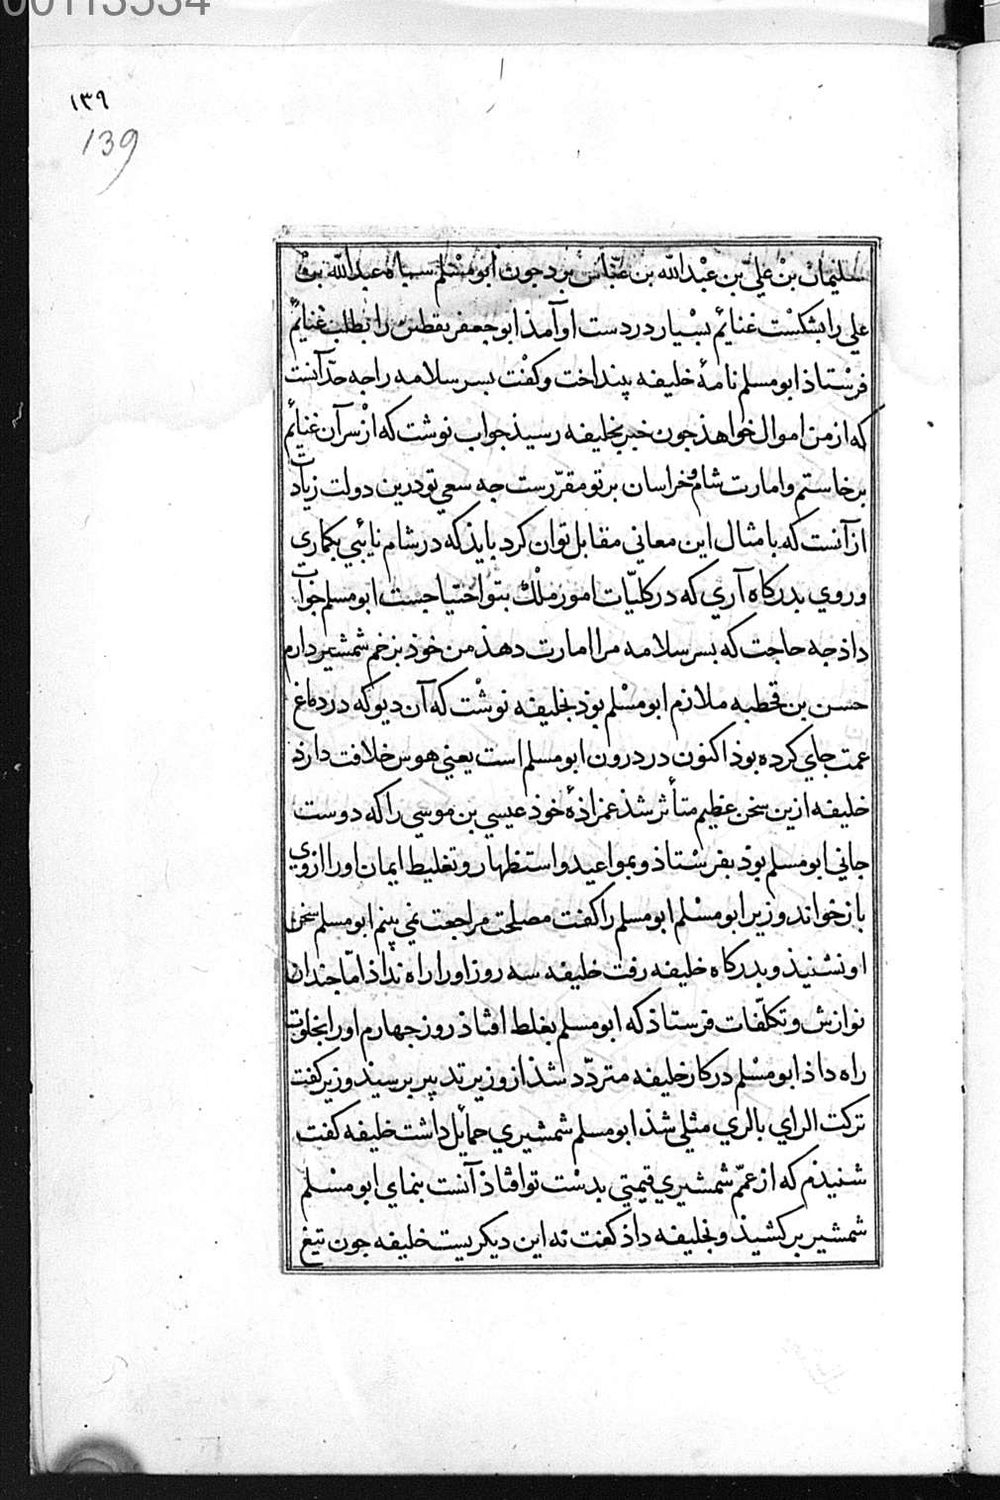 00113534
١٣٩
139
سلیمان بن علي بن عبد الله بن عباس برد جون ابو مسلم سپاه عبد الله بن
علي را بشکست غنائم بسیار در دست او آمذ ابو جعفر یقطین را بطلب غنایم
فرستاذ ابو مسلم نامهٔ خلیفه بینداخت و کفت بسر سلامه را جه حدّ آنست
که از من اموال خواهذ جون خبر بخلیفه رسیذ جواب نوشت که از سر آن غنائم
برخاستم و امارت شام و خراسان بر تو مقرّرست جه سعي تو درین دولت زیادت
از آنست که با مثال این معاني مقابل توان کرد بایذ که در شام نائبي بکماري
و روي بدرکاه آري که در کلیّات امور ملک بتو احتیاجست ابو مسلم جواب
داذ جه حاجت که بسر سلامه مرا امارت دهذ من خوذ بزخم شمشیر دارم
حسن بن قحطبه ملازم ابو مسلم بوذ بخلیفه نوشت که آن دیو که در دماغ
عمت جاي کرده بوذ اکنون در درون ابو مسلم است یعني هوس خلافت دارذ
خلیفه ازین سخن عظیم متأثر شذ عمزاذهٔ خوذ عیسي بن موسي را که دوست
جاني ابو مسلم بوذ بفرستاذ و بمواعید و استظهار و تغلیظ ایمان او را از وي
باز خواند وزیر ابو مسلم ابو مسلم را کفت مصلحت مراجعت نمي بینم ابو مسلم سخن
او نشنیذ و بدرکاه خلیفه رفت خلیفه سه روز او را راه نداذ امّا جندان
نوازش و تکلّفات فرستاذ که ابو مسلم بغلط افتاذ روز جهارم او را بخلوت
راه داذ ابو مسلم در کار خلیفه متردّد شذ از وزیر تدبیر برسیذ وزیر کفت
ترکت الراي بالري مثلي شذ ابو مسلم شمشیري حمائل داشت خلیفه کفت
شنیذم که از عمّم شمشیري قیمتي بدست تو افتاذ آنست بنماي ابو مسلم
شمشیر برکشیذ و بخلیفه داذ کفت نه این دیکریست خلیفه جون تیغ